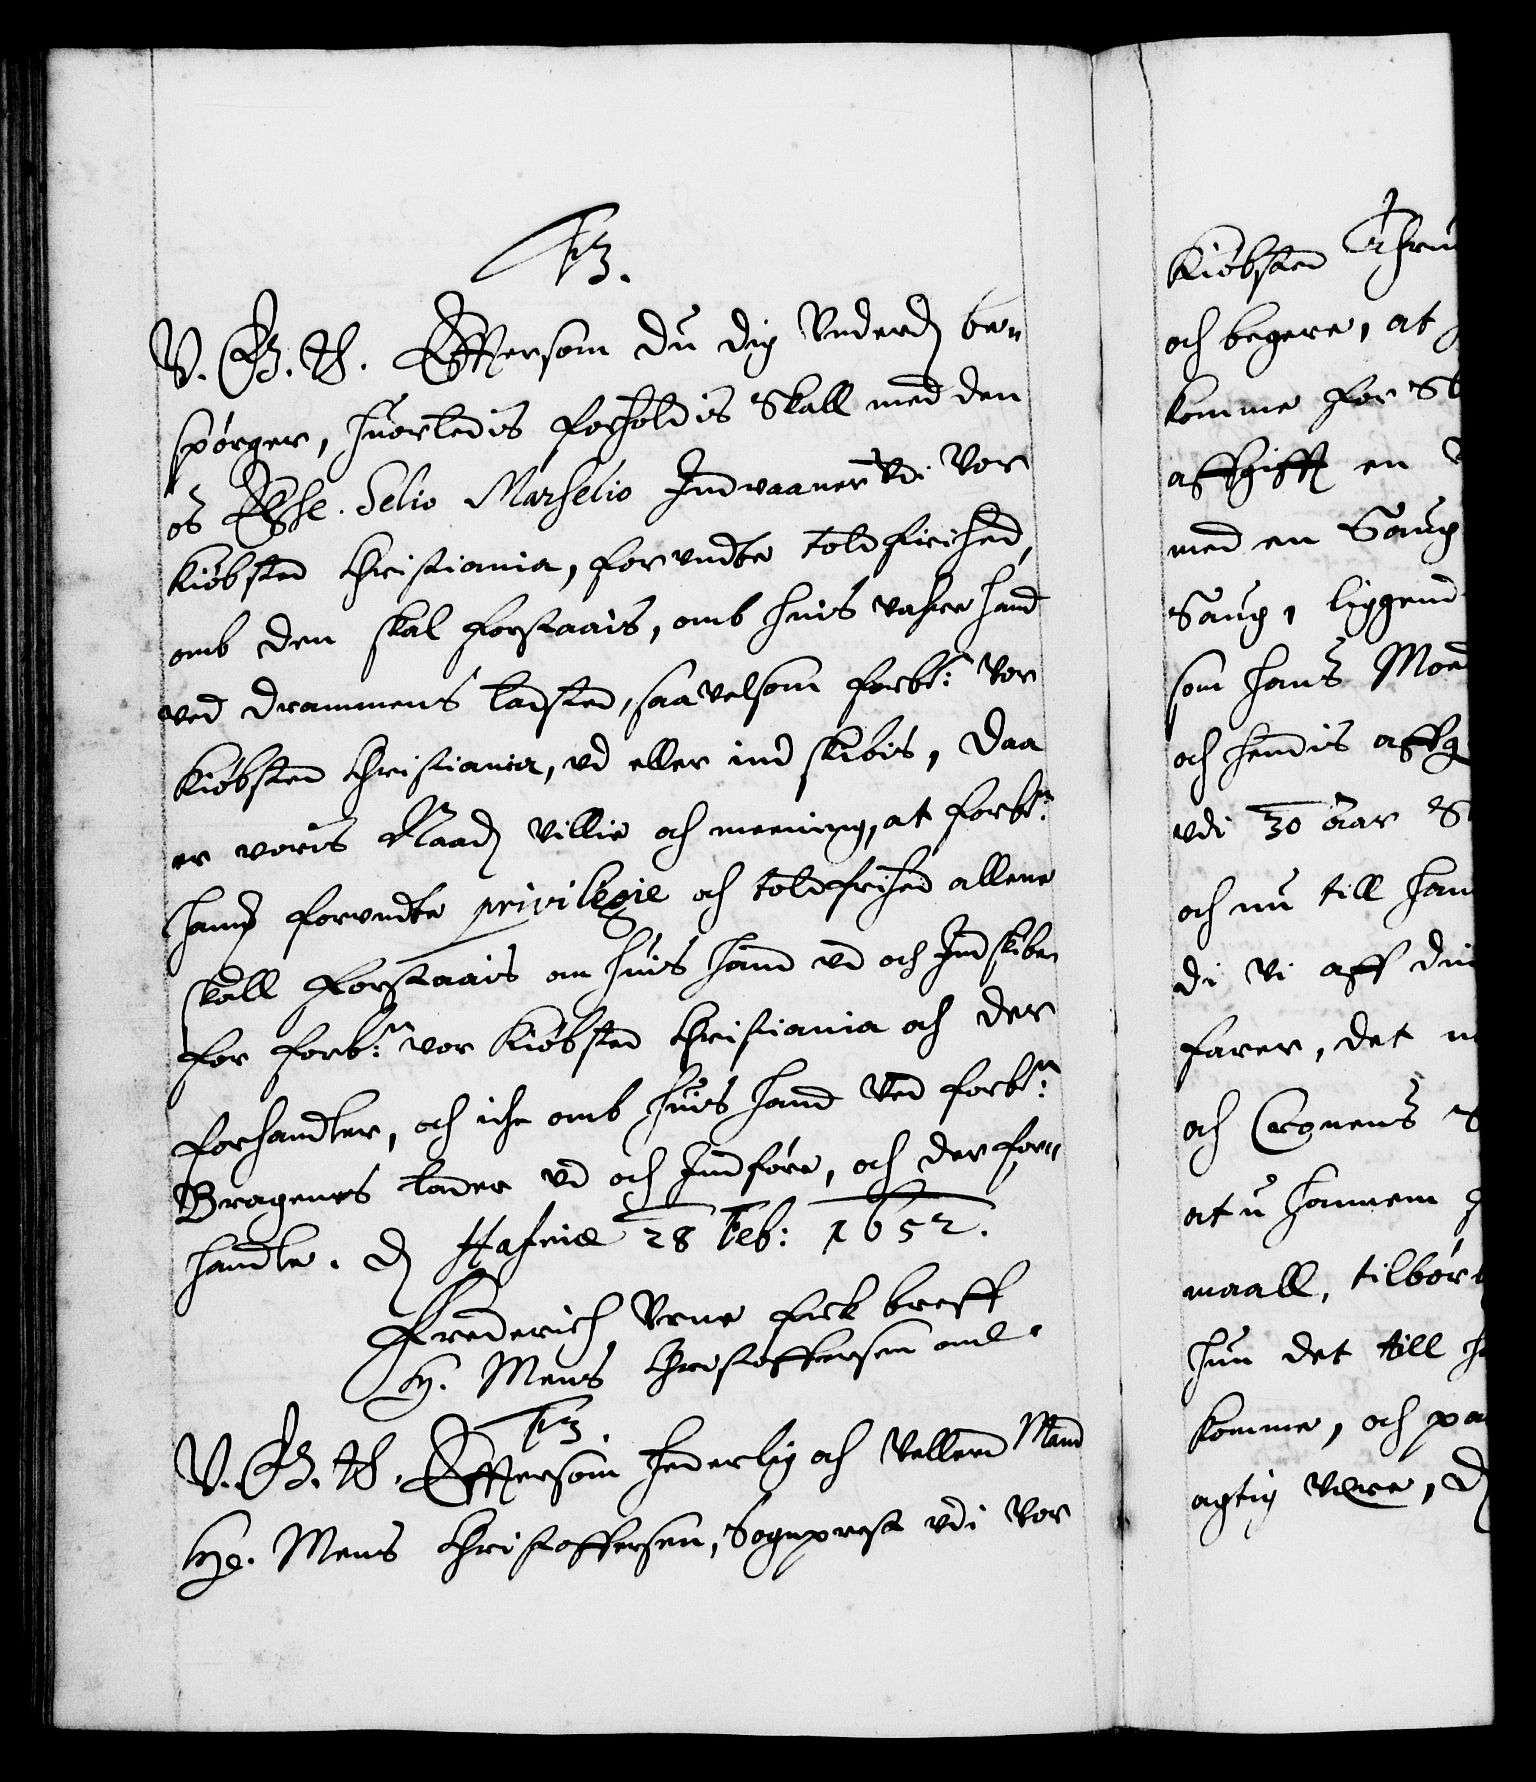 F3.
V. G. Th. Efftersom du dig Vnderd: be-
spörger, huorledis forholdis Skall med den
os Elsk. Selio Marselio Indvaaner Vdi Vor
Kiöbsted Christiania, forundte toldfrihed,
omb den skal forstaais, omb huis vahre hand
ved Drammens ladsted, saavelsom forbt: Vor
Kiöbsted Christiania, ud eller ind skibis, daa
er voris Naad: villie och meening, at forbte:
hans forundte privilegie och toldfrihed allene
skall forstaais om huis hand ud och Indskiber
for forbte: vor Kiöbsted Christiania och der
forhandler, och iche omb huis hand Ved forbte:
Bragenes lader ud och Indföre, och der for-
handle. D: Hafniæ 28 Feb: 1652.
Frederich Vrne fick breff
H. Mens Christoffersen anl.
F3.
V. G. Th. Efftersom hederlig och Vellerd Mand
He. Mens Christoffersen, Sogneprest udi Vor
Kiöbsted
och begere, at
komme for
affgifft en
med en Saug
Saug, liggend
som hans Mod
och hendis affg
udi 30 aar
och nu till han
di Vi aff din
farer, det
och Cronens
at u hannem
maall, tilbör
hun det till
komme, och paa
agtig Være, D